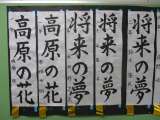 高原の花
高原の花
将来の夢
将来の夢
将来の夢